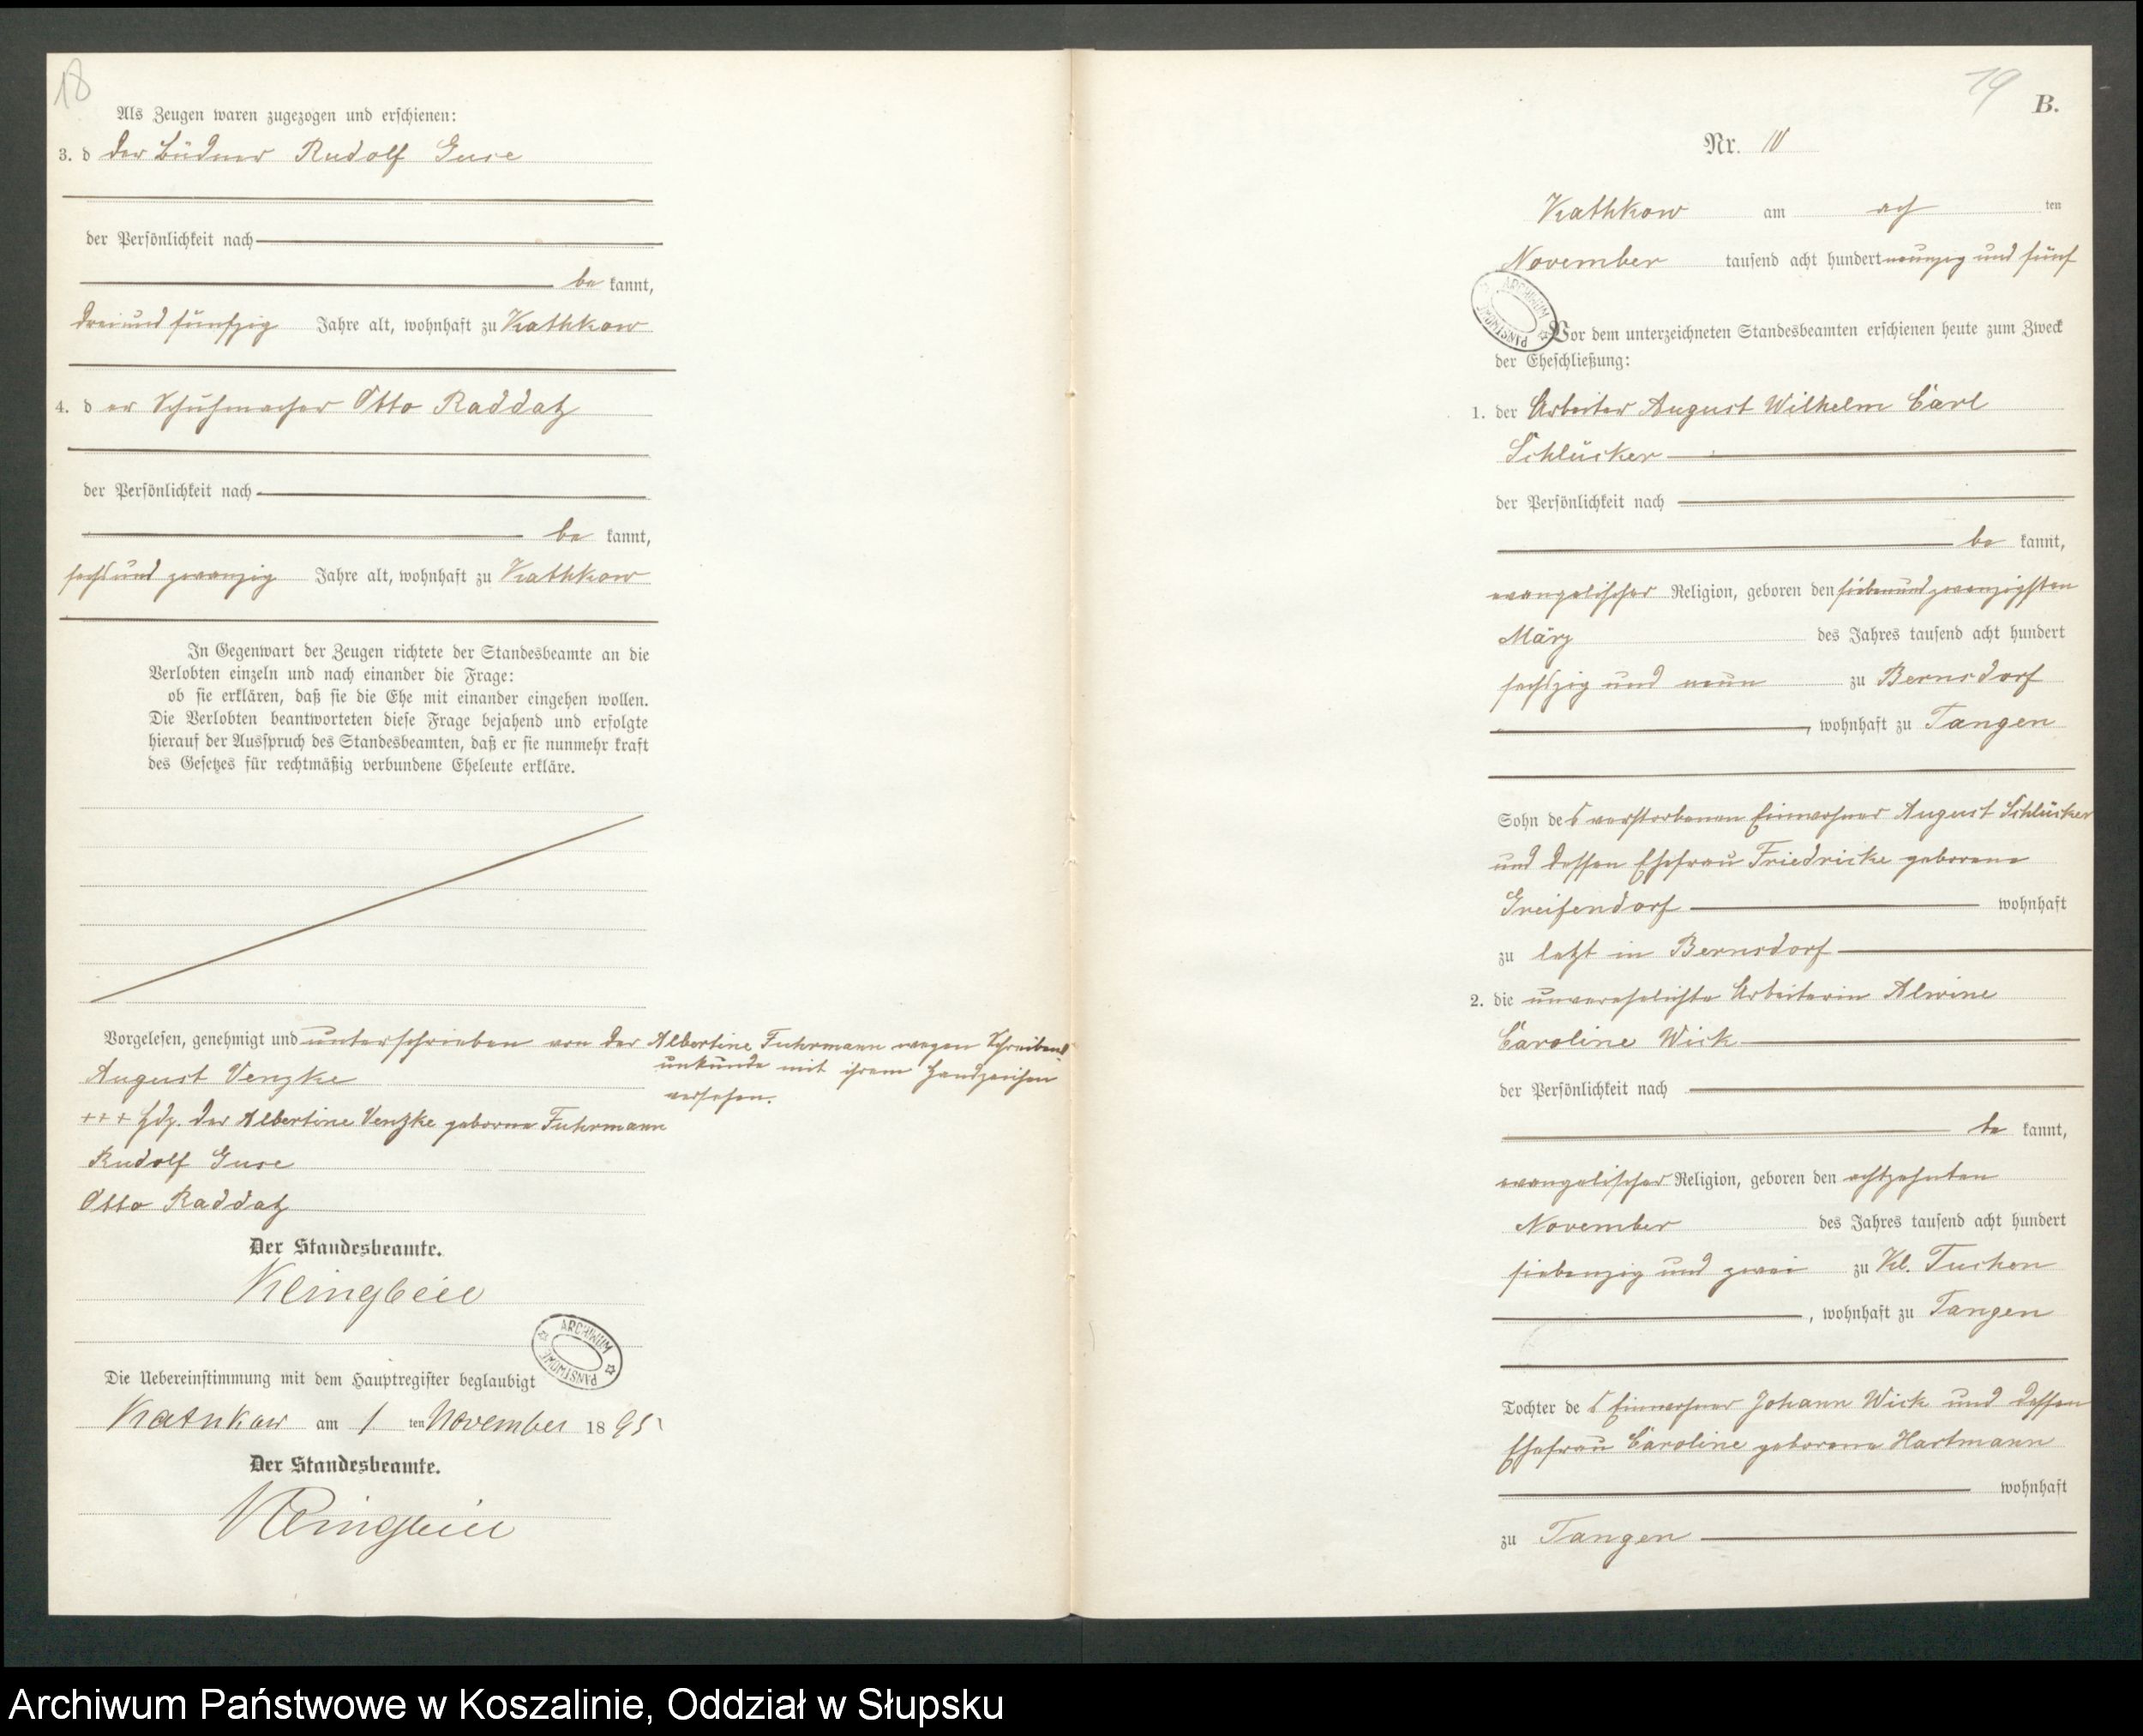 18
Als Zeugen waren zugezogen und erschienen:
3. d der Büdner Rudolf Guse
der Persönlichkeit nach
be kannt,
dreiund fünfzig Jahre alt, wohnhaft zu Kathkow
4. d er Schuhmacher Otto Raddatz
der Persönlichkeit nach
be kannt,
sechsund zwanzig Jahre alt, wohnhaft zu Kathkow
In Gegenwart der Zeugen richtete der Standesbeamte an die
Verlobten einzeln und nach einander die Frage:
ob sie erklären, daß sie die Ehe mit einander eingehen wollen.
Die Verlobten beantworteten diese Frage bejahend und erfolgte
hierauf der Ausspruch des Standesbeamten, daß er sie nunmehr kraft
des Gesetzes für rechtmäßig verbundene Eheleute erkläre.
Vorgelesen, genehmigt und unterschrieben von der Albertine Fuhrmann wegen Schreibens
unkunde mit ihrem Handzeichen
versehen.
August Venzke
+++ Hdz. der Albertine Venzke geborene Fuhrmann
Rudolf Guse
Otto Raddatz
Der Standesbeamte.
Klingbeil
ARCHIWUM PAŃSTWOWE
Die Uebereinstimmung mit dem Hauptregister beglaubigt
Kathkow am 1 ten November 18 95
Der Standesbeamte.
Klingbeil
19
B.
Nr. 10
Kathkow am ach ten
November tausend acht hundert neunzig und fünf
ARCHIWUM PAŃSTWOWE
Vor dem unterzeichneten Standesbeamten erschienen heute zum Zweck
der Eheschließung:
1. der Arbeiter August Wilhelm Carl
Schlücker
der Persönlichkeit nach
be kannt,
evangelischer Religion, geboren den siebenund zwanzigsten
März des Jahres tausend acht hundert
sechszig und neun zu Bernsdorf
, wohnhaft zu Tangen
Sohn des verstorbenen Einwohner August Schlücker
und dessen Ehefrau Friedricke geborene
Greifendorf wohnhaft
zu letzt in Bernsdorf
2. die unverehelichte Arbeiterin Alwine
Caroline Wick
der Persönlichkeit nach
be kannt,
evangelischer Religion, geboren den achtzehnten
November des Jahres tausend acht hundert
siebenzig und zwei zu Kl. Tuchen
, wohnhaft zu Tangen
Tochter des Einwohner Johann Wick und dessen
Ehefrau Caroline geborene Hartmann
wohnhaft
zu Tangen
Archiwum Państwowe w Koszalinie, Oddział w Słupsku